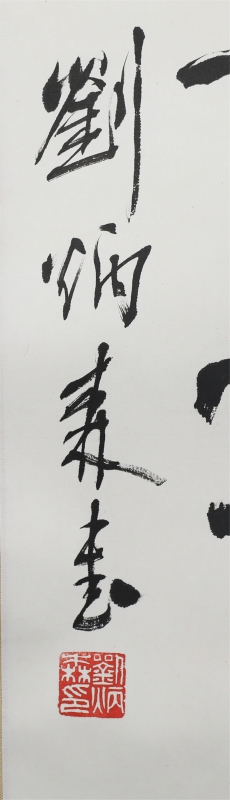 劉炳森書
劉炳森印